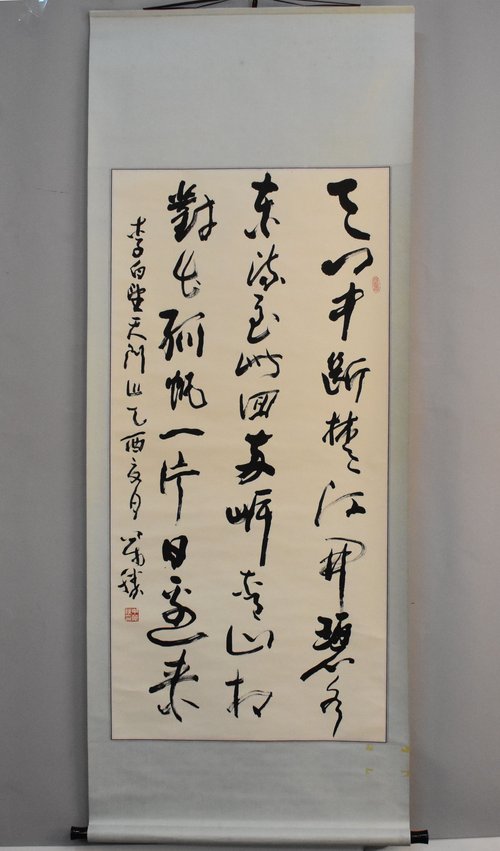 天门中斷楚江開碧水
東流至此回两岸青山相
對出孤帆一片日边来
李白望天门山乙酉夏月